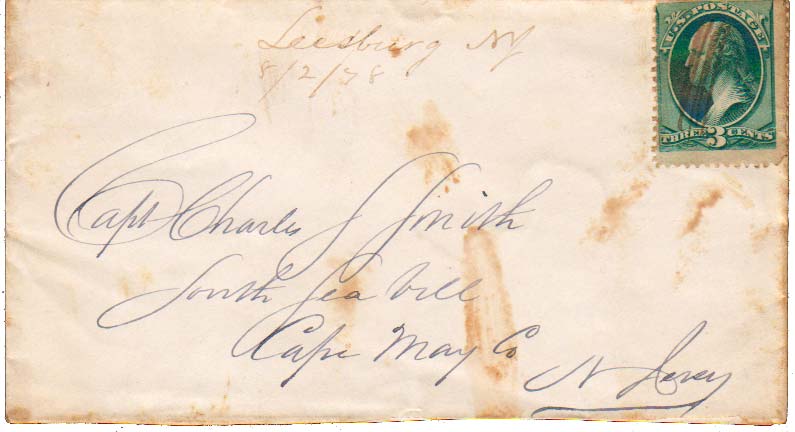 Leesburg NJ
8/2/78
U.S. POSTAGE
THREE 3 CENTS
Capt Charles S Smith
South Sea Vill
Cape May Co
N Jersey